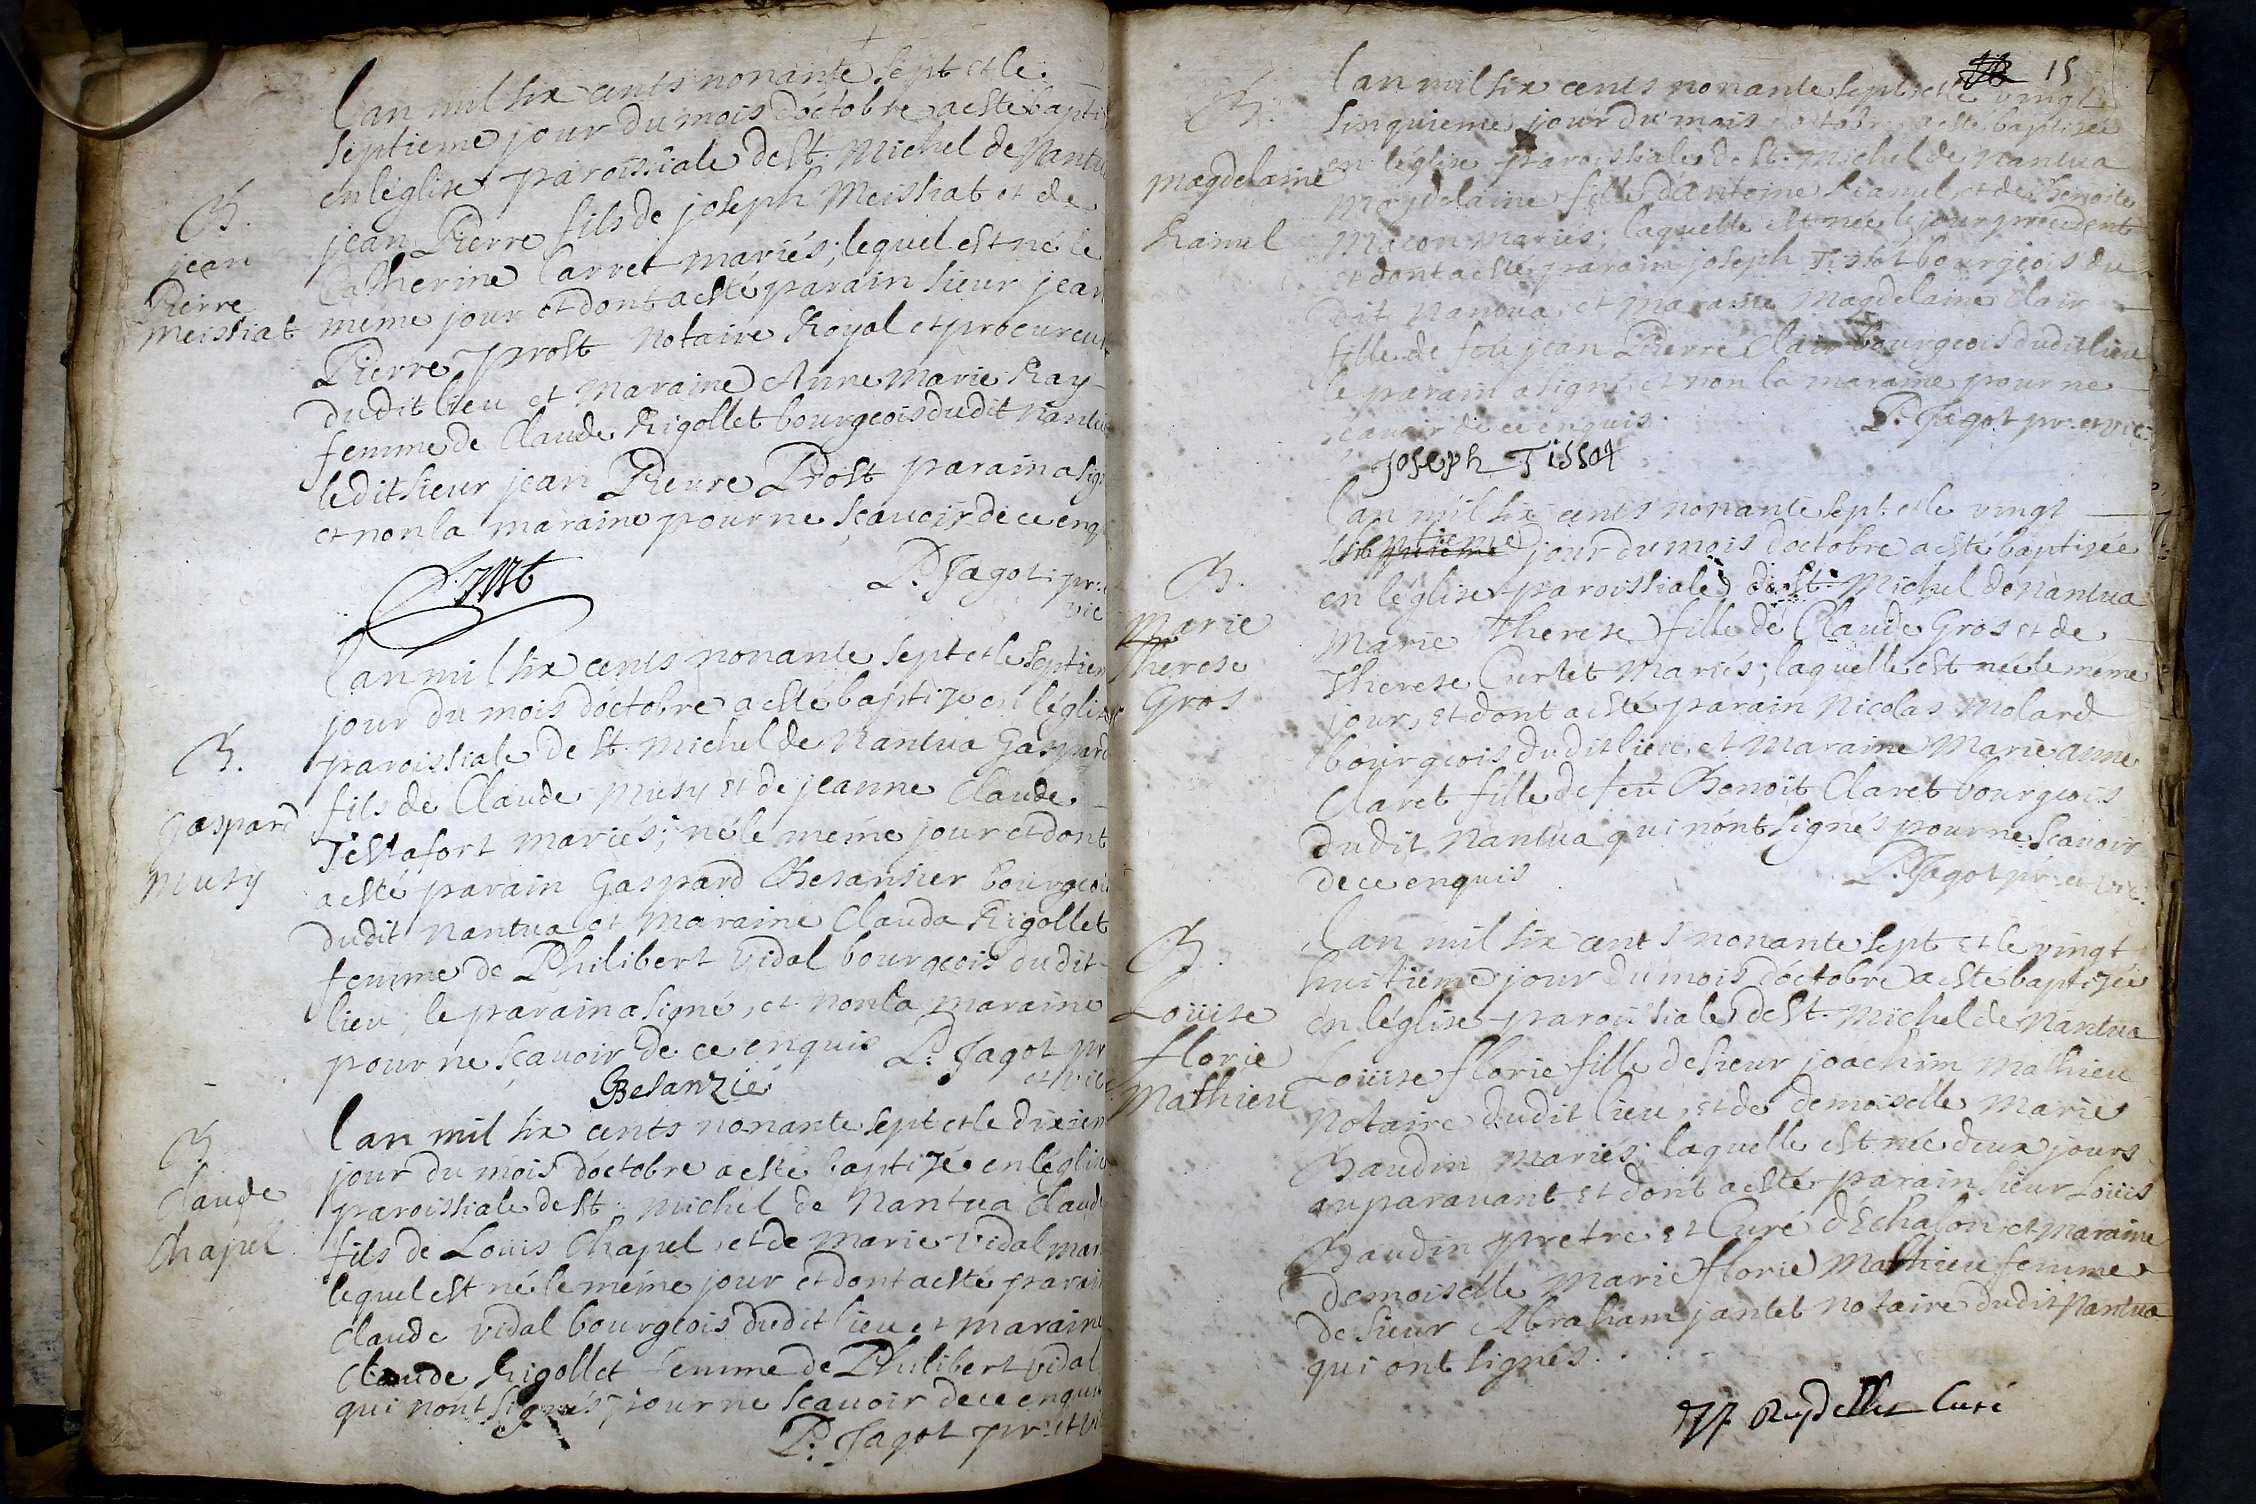 Lan mil six cents nonante sept et le
septieme jour du mois d'octobre a esté bapti
en léglise paroissiale de St. Michel de Nantu
B.
jean
Pierre
Meissiat
jean Pierre fils de joseph Meissiat et de
Catherine Carret mariés; lequel est né le
meme jour et dont a esté parain sieur jean
Pierre Prost Notaire Royal et procureu
dudit lieu et Maraine Anne Marie Ray
femme de Claude Rigollet bourgeois dudit Nantu
ledit sieur jean Pierre Prost parain a sig
et non la maraine pour ne sçauoir de ce enq
P. Jagot pr.
vic
Lan mil six cents nonante sept et le septiem
jour du mois d'octobre a esté baptizé en léglise
B.
Gaspard
Musy
paroissiale de St. Michel de Nantua Gaspard
fils de Claude Musy et de jeanne Claude
Testafort mariés; né le meme jour et dont
a esté parain Gaspard Besansier bourgeoi
dudit Nantua et Maraine Clauda Rigollet
femme de Philibert Vidal bourgeois dudit
lieu; le parain a signé, et non la maraine
pour ne sçauoir de ce enquis P. Jagot pr
et vic
Besanzié
B.
Claude
Chapel
Lan mil six cents nonante sept et le dixiem
jour du mois d'octobre a esté baptizé en léglise
paroissiale de St. Michel de Nantua Claude
fils de Louis Chapel, et de Marie Vidal mar
lequel est né le meme jour et dont a esté parain
Claude Vidal bourgeois dudit lieu et maraine
Claude Rigollet femme de Philibert Vidal
qui n'ont signés pour ne scauoir de ce enquis
P. Jagot pr. et v
15
B.
Magdelaine
Ramel
Lan mil six cents nonante sept et le vingt
sinquieme jour du mois octobre a esté baptisée
en léglise paroissiale de St. Michel de Nantua
Magdelaine fille d'Antoine Ramel et de Benoite
Macon mariés; laquelle est née le jour precedent
et dont a esté parain joseph Tissot bourgeois du
dit Nantua, et Maraine Magdelaine Clair
fille de feu jean Pierre Clair bourgeois dudit lieu
le parain a signé, et non la maraine pour ne
scauoir de ce enquis. P. Jagot pr. et vic.
Joseph Tissot
B.
Marie
Therese
Gros
Lan mil six cents nonante sept et le vingt
septieme jour du mois d'octobre a esté baptisée
en léglise paroissiale de St. Michel de Nantua
Marie Therese fille de Claude Gros et de
Therese Curlet Mariés; laquelle est née le meme
jour, et dont a esté parain Nicolas Molard
bourgeois dudit lieu, et Maraine Marie anne
Claret fille de feu Benoit Claret bourgeois
dudit Nantua qui n'ont signés pour ne scauoir
de ce enquis P. Jagot pr. et vic.
B.
Loüise
florie
Mathieu
Lan mil six cents nonante sept et le vingt
huitieme jour du mois d'octobre a esté baptizée
en léglise paroissiale de St. Michel de Nantua
Loüise florie fille de sieur joachim Mathieu
Notaire dudit lieu, et de demoiselle Marie
Baudin mariés; laquelle est née deux jours
auparauant et dont a esté parain sieur Loüis
Baudin pretre et Curé d'Echalon, et maraine
demoiselle Marie florie Mathieu femme
de sieur Abraham jantet Notaire dudit Nantua
qui ont signés.
Curé